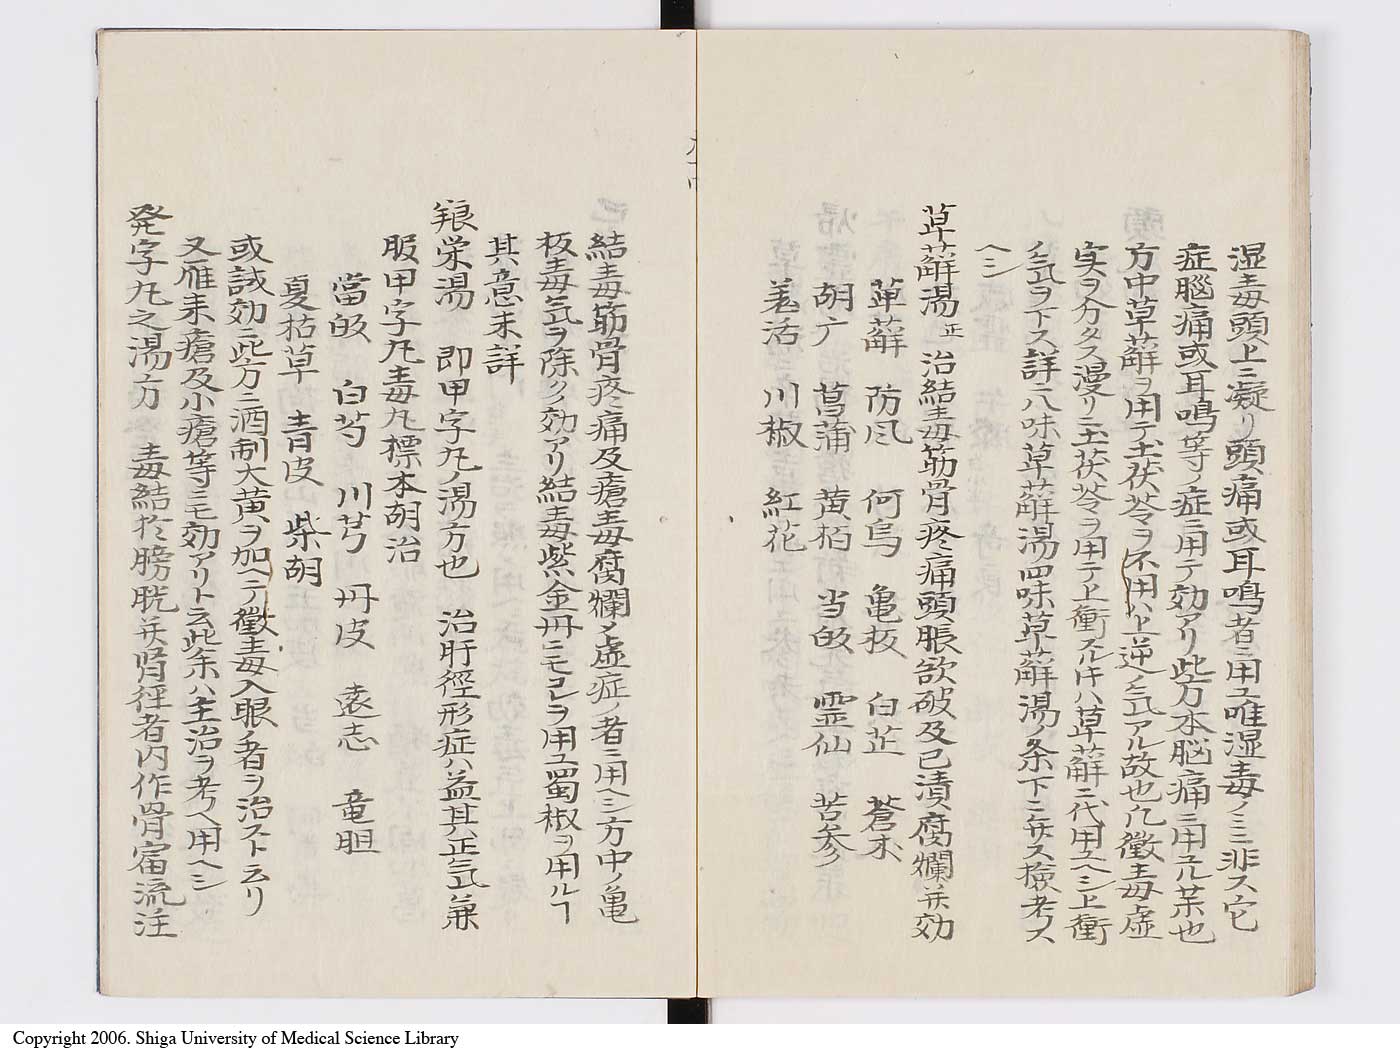 湿毒頭上ニ凝リ頭痛或耳鳴者ニ用ユ唯湿毒ノミニ非ス它
症脳痛或耳鳴等ノ症ニ用テ効アリ此方本脳痛ニ用ユル薬也
方中草薢ヲ用テ土茯苓ヲ不用ハ上逆ノ気アル故也凡黴毒虚
実ヲ分タス漫リニ土茯苓ヲ用テ上衝スルキハ草薢ニ代用ユヘシ上衝
ノ気ヲ下ス詳ニ八味草薢湯四味草薢湯ノ条下ニ弁ス撿考ス
ヘシ
草薢湯 正 治結毒筋骨疼痛頭脹欲破及已潰腐爛并効
草薢 防風 何烏 亀板 白芷 蒼朮
胡广 菖蒲 黄栢 当皈 霊仙 苦参
羗活 川椒 紅花
結毒筋骨疼痛及瘡毒腐爛ノ虚症ノ者ニ用ヘシ方中ノ亀
板毒気ヲ除クノ効アリ結毒紫金丹ニモコレヲ用ユ蜀椒ヲ用ルヿ
其意未詳
狼栄湯 即甲字丸ノ湯方也 治肝徑形症ハ益其正気兼
服甲字丸毒丸標本胡治
當皈 白芍 川芎 丹皮 遠志 竜胆
夏枯草 青皮 柴胡
或誠効ニ此方ニ酒制大黄ヲ加ヘテ黴毒入眼ノ者ヲ治ストニ云リ
又雁来瘡及小瘡等ニモ効アリト云此余ハ主治ヲ考ヘ用ヘシ
発字丸之湯方 毒結於膀胱并腎徑者内作骨痛流注
Copyright 2006. Shiga University of Medical Science Library